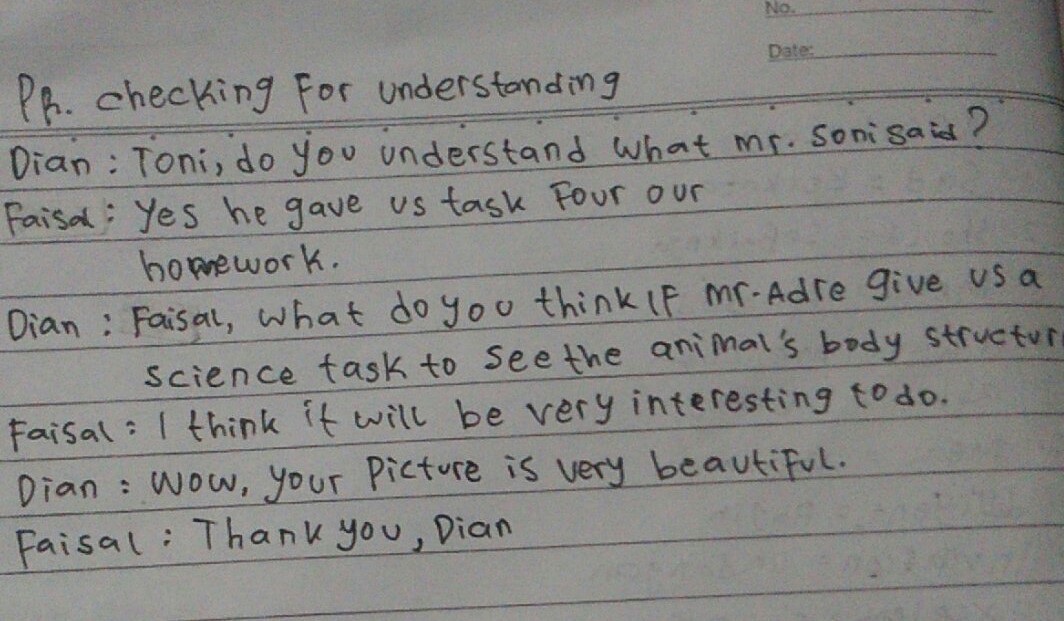 No.
Date:
PR. checking For understanding
Dian : Toni, do you understand what mr. Soni said?
Faisal : Yes he gave us task Four our
homework.
Dian : Faisal, what do you think iF mr. Adre give us a
science task to see the animal's body structur
Faisal : I think it will be very interesting to do.
Dian : Wow, your Picture is very beautiFul.
Faisal : Thank you, Dian